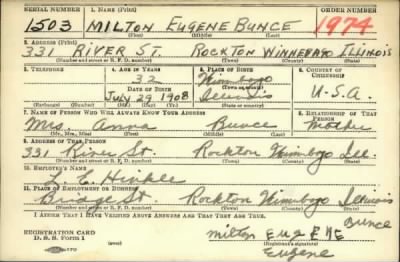 SERIAL NUMBER 1. NAME (Print) ORDER NUMBER
1503 MILTON EUGENE BUNCE 1974
(First) (Middle) (Last)
2. ADDRESS (Print)
331 RIVER ST. ROCKTON WINNEBAGO ILLINOIS
(Number and street or R. F. D. number) (Town) (County) (State)
3. TELEPHONE 4. AGE IN YEARS 5. PLACE OF BIRTH 6. COUNTRY OF CITIZENSHIP
32 Winnebago
DATE OF BIRTH (Town or county)
July 29 1908 Illinois U.S.A.
(Exchange) (Number) (Mo.) (Day) (Yr.) (State or country)
7. NAME OF PERSON WHO WILL ALWAYS KNOW YOUR ADDRESS 8. RELATIONSHIP OF THAT PERSON
Mrs Anna Bunce Mother
(Mr., Mrs., Miss) (First) (Middle) (Last)
9. ADDRESS OF THAT PERSON
331 River St. Rockton Winnebago Ill.
(Number and street or R. F. D. number) (Town) (County) (State)
10. EMPLOYER'S NAME
L. E. Hinkle
11. PLACE OF EMPLOYMENT OR BUSINESS
Bridge St. Rockton Winnebago Illinois
(Number and street or R. F. D. number) (Town) (County) (State)
I AFFIRM THAT I HAVE VERIFIED ABOVE ANSWERS AND THAT THEY ARE TRUE.
REGISTRATION CARD
D. S. S. Form 1
Milton EUGENE Bunce
(Registrant's signature)
Eugene